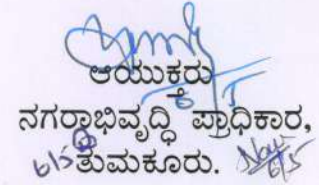 ಆಯುಕ್ತರು
ನಗರಾಭಿವೃದ್ಧಿ ಪ್ರಾಧಿಕಾರ,
ತುಮಕೂರು.